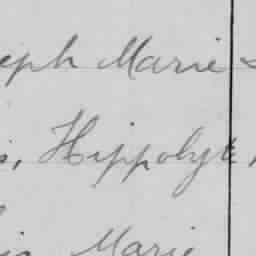 eph Marie
s, Hippolyte,
is Marie